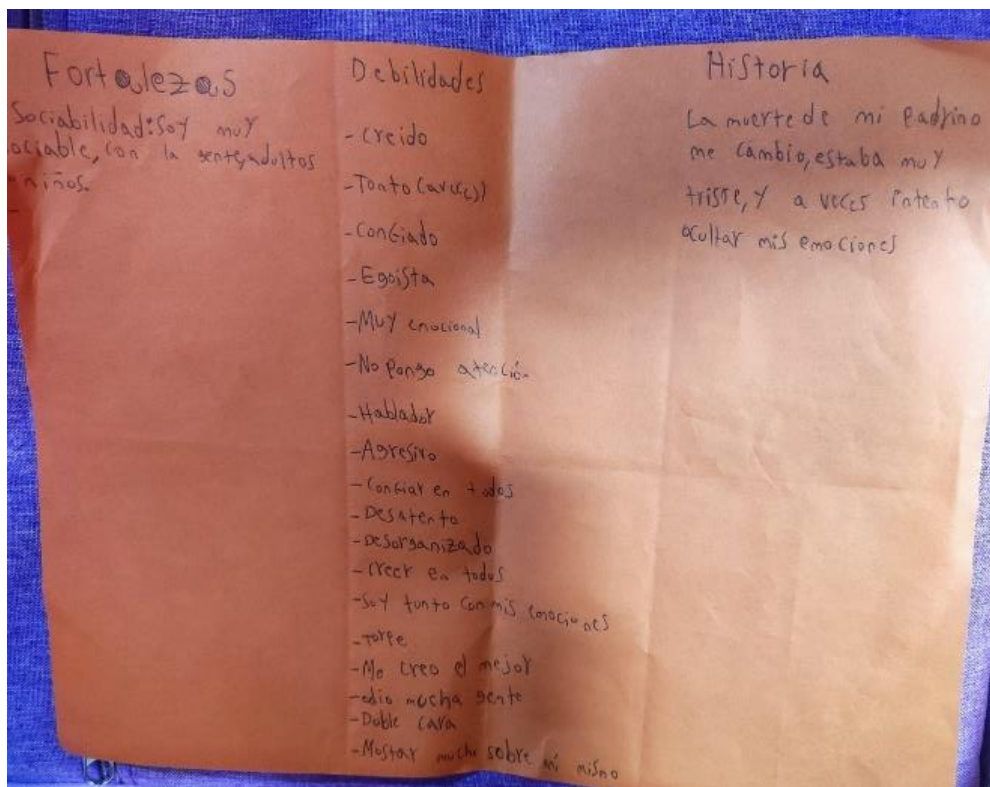 Fortalezas
Sociabilidad: Soy muy
ociable, con la gente, adultos
niños.
-
Debilidades
- Creido
- Tonto (aveces)
- Confiado
- Egoista
- Muy emocional
- No pongo atención
- Hablador
- Agresivo
- Confiar en todos
- Desatento
- Desorganizado
- Creer en todos
- Soy tonto con mis emociones
- Torpe
- Me creo el mejor
- odio mucha gente
- Doble cara
- Mostar mucho sobre mi mismo
Historia
La muerte de mi Padrino
me cambio, estaba muy
triste, y a veces intento
ocultar mis emociones